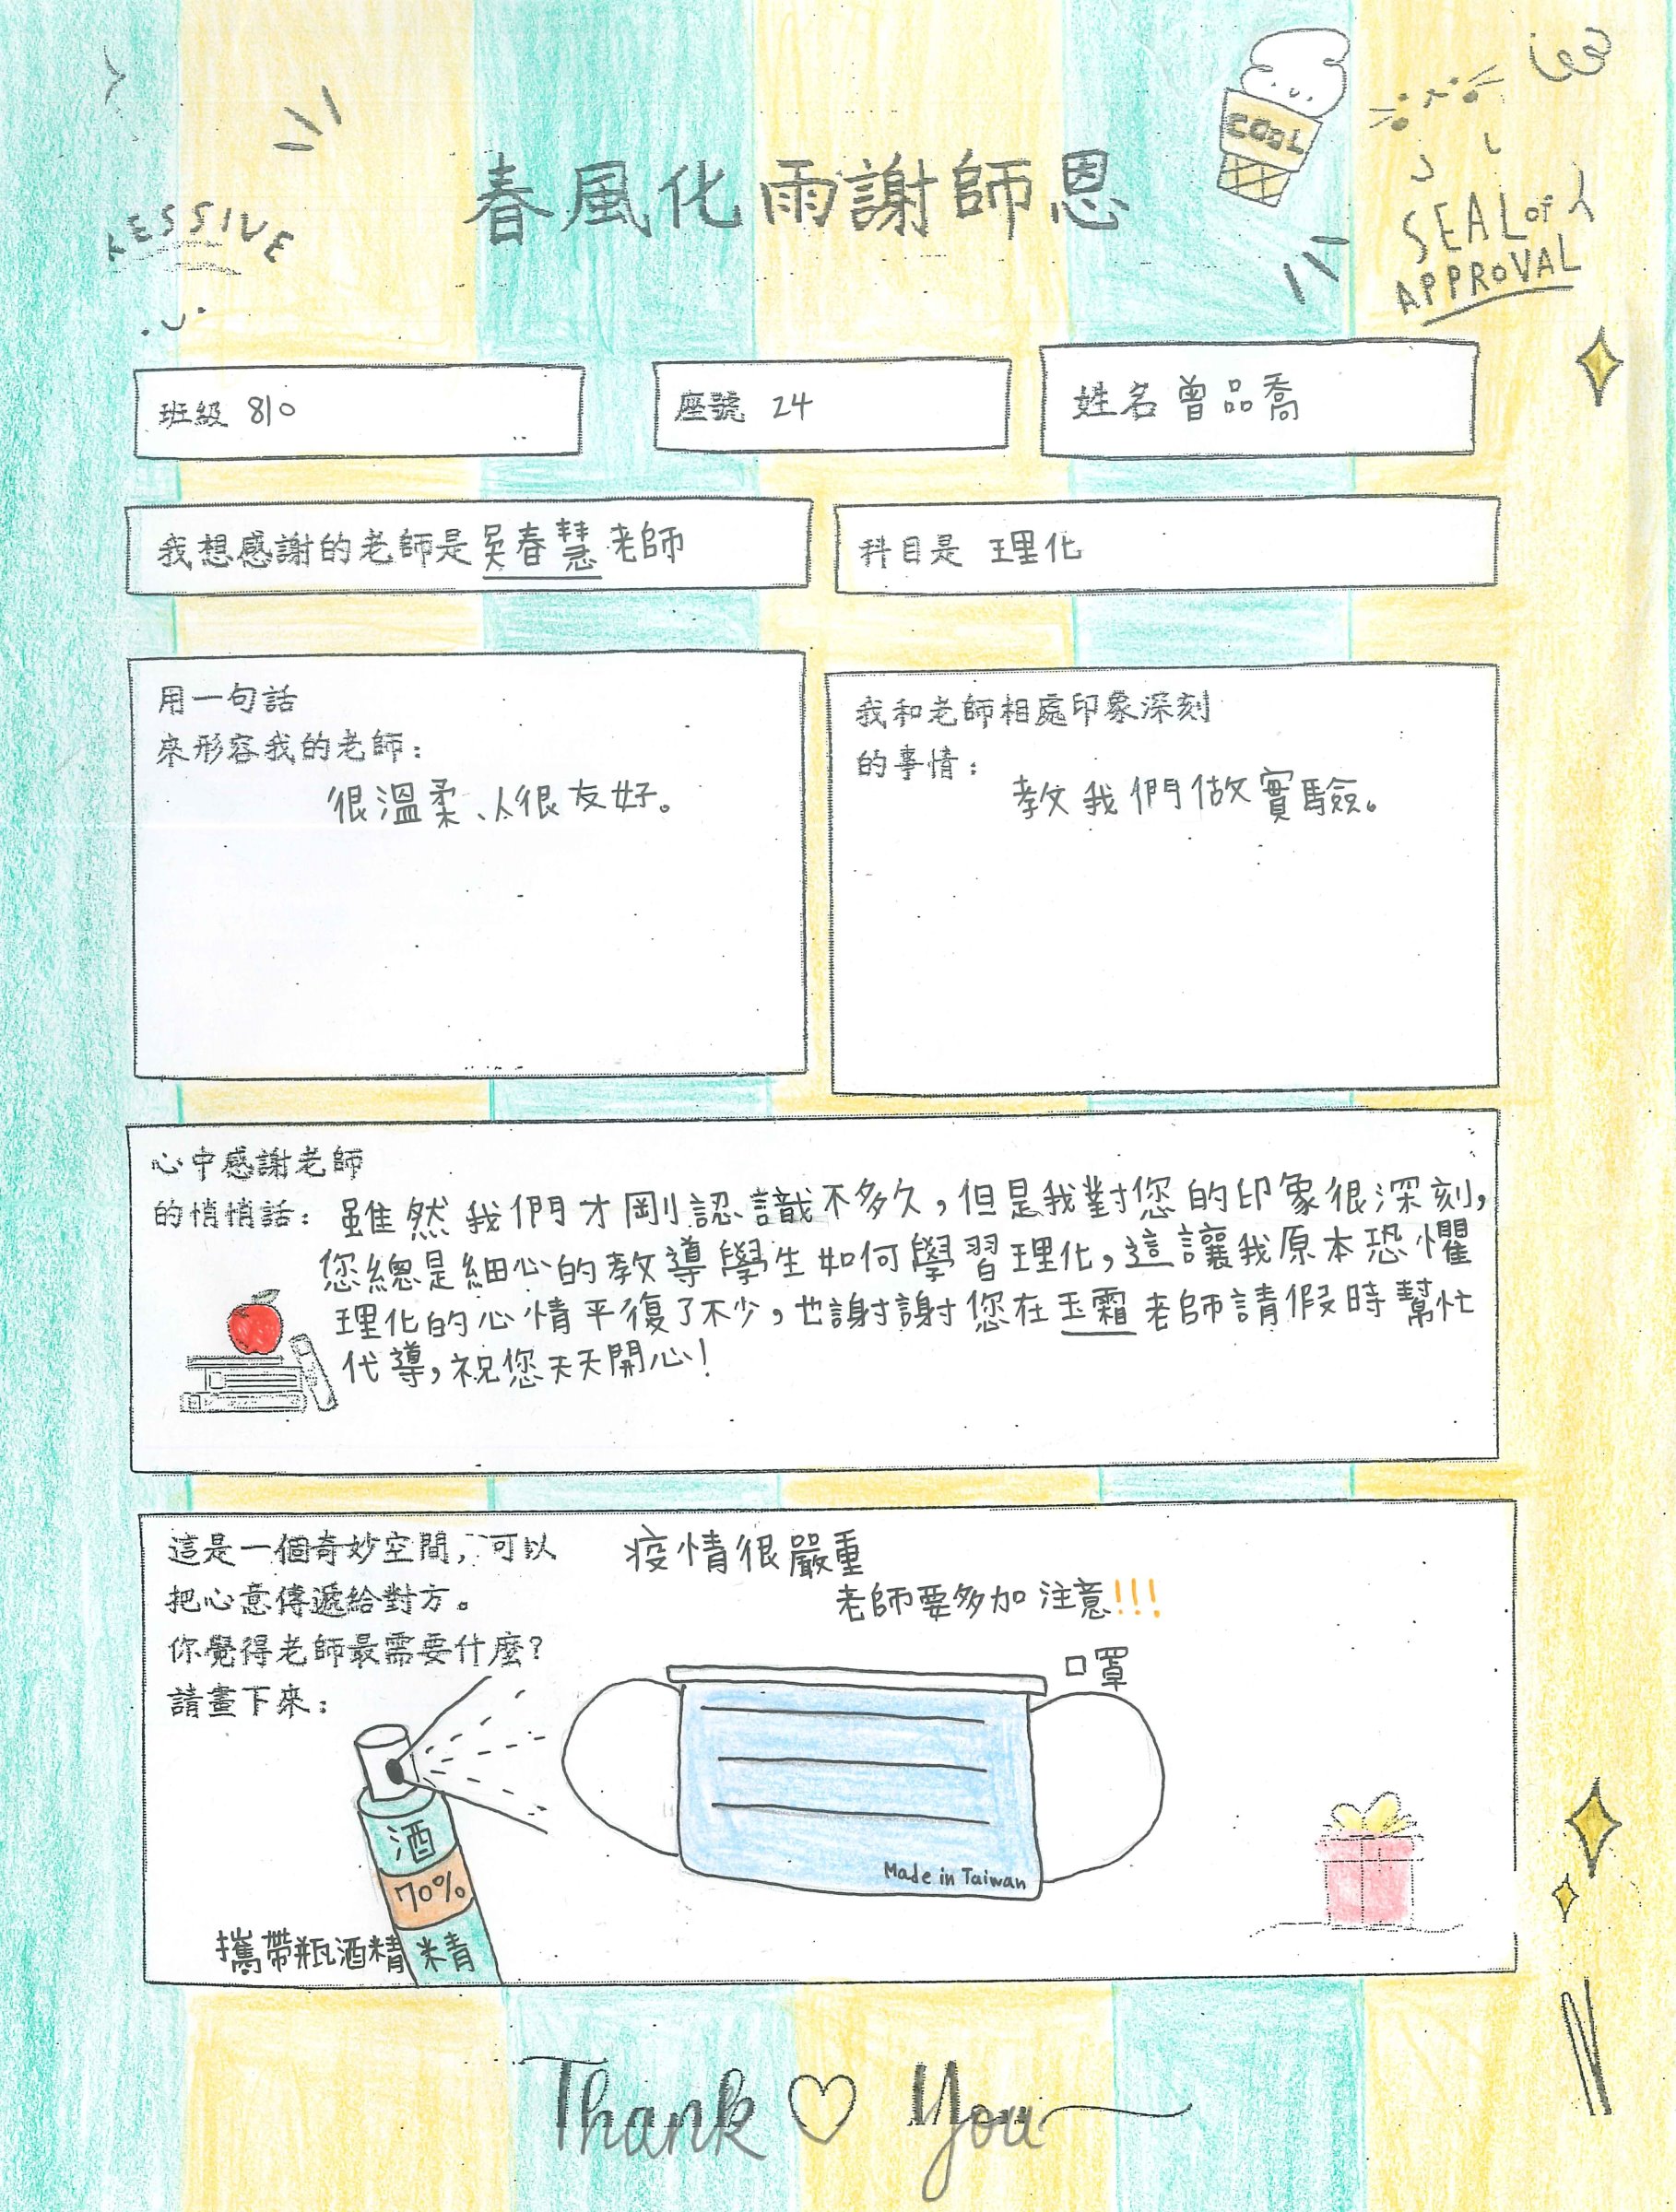 COOL
SEAL of
APPROVAL
ESSIVE
春風化雨謝師恩
班級 810
座號 24
姓名 曾品喬
我想感謝的老師是吳春慧老師
科目是 理化
用一句話
來形容我的老師：
很溫柔、人很友好。
我和老師相處印象深刻
的事情：
教我們做實驗。
心中感謝老師
的悄悄話：雖然我們才剛認識不多久，但是我對您的印象很深刻，
您總是細心的教導學生如何學習理化，這讓我原本恐懼
理化的心情平復了不少，也謝謝您在玉霜老師請假時幫忙
代導，祝您天天開心！
這是一個奇妙空間，可以
把心意傳遞給對方。
你覺得老師最需要什麼？
請畫下來：
疫情很嚴重
老師要多加注意!!!
口罩
Made in Taiwan
酒
70%
精
攜帶瓶酒精
Thank You